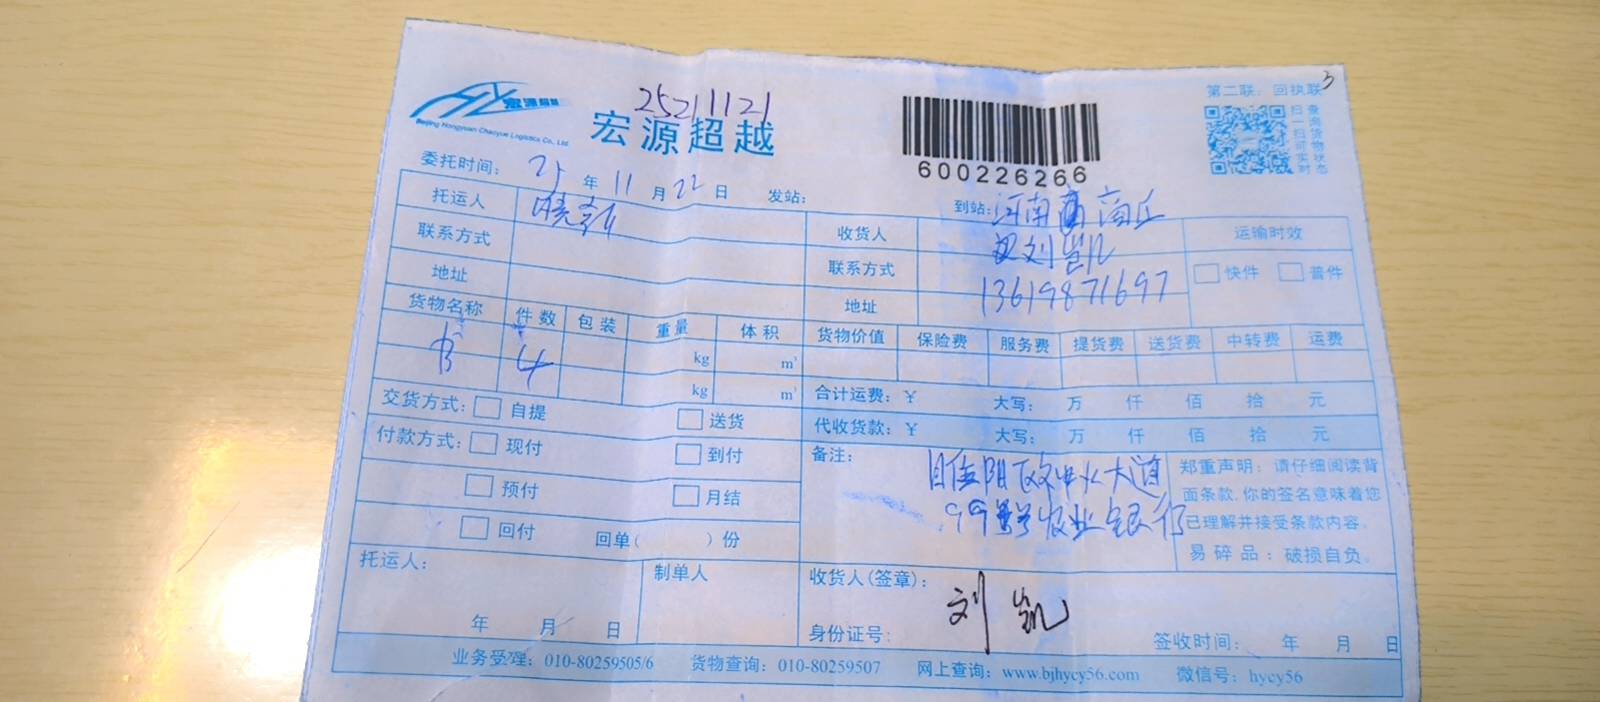 第二联：回执联
宏源超越
Beijing Hongyuan Chaoyue Logistics Co., Ltd.
25211121
宏源超越
600226266
扫一扫可实时
查询货物状态
委托时间： 25 年 11 月 22 日 发站： 到站：河南 商丘
托运人
收货人 刘凯
运输时效
联系方式
联系方式
快件 普件
地址
地址 13619871697
货物名称 件数 包装 重量 体积 货物价值 保险费 服务费 提货费 送货费 中转费 运费
4 kg m³
kg m³
合计运费：￥ 大写： 万 仟 佰 拾 元
交货方式： 自提 送货
代收货款：￥ 大写： 万 仟 佰 拾 元
付款方式： 现付 到付
预付 月结
回付 回单（ ）份
备注：
大道
99号 农业银行
郑重声明：请仔细阅读背
面条款，你的签名意味着您
已理解并接受条款内容。
易碎品：破损自负。
托运人：
制单人
收货人（签章）：
刘凯
年 月 日
身份证号：
签收时间： 年 月 日
业务受理：010-80259505/6 货物查询：010-80259507 网上查询：www.bjhycy56.com 微信号：hycy56